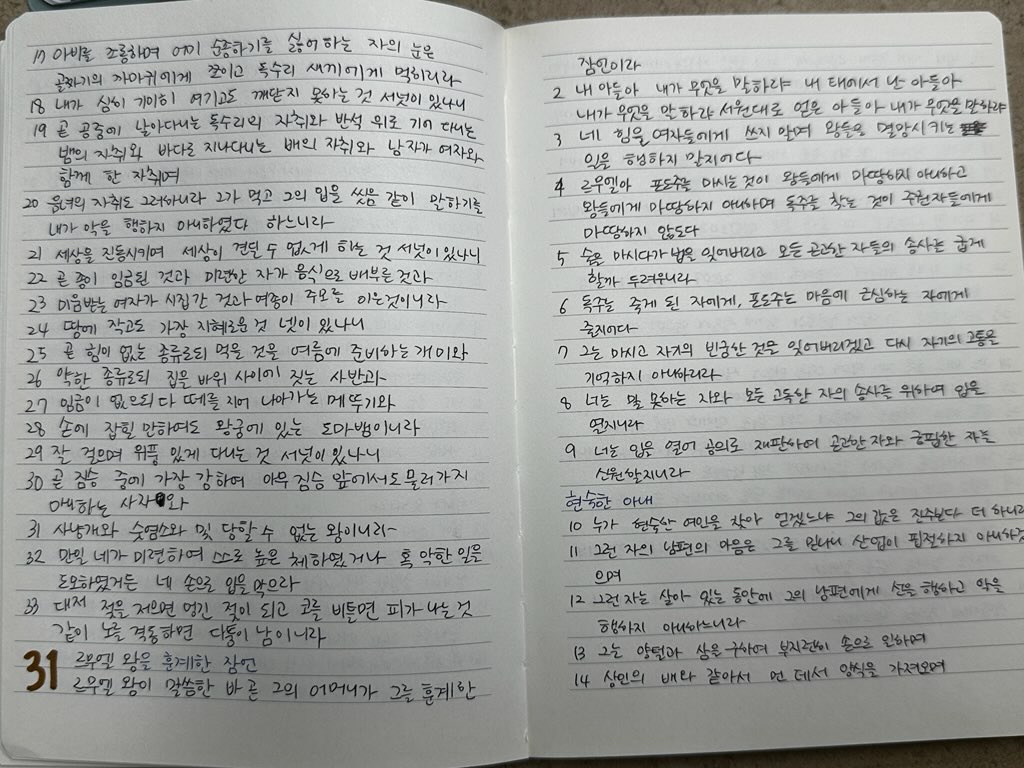 17 아비를 조롱하며 어미 순종하기를 싫어하는 자의 눈은
골짜기의 까마귀에게 쪼이고 독수리 새끼에게 먹히리라
18 내가 심히 기이히 여기고도 깨닫지 못하는 것 서넛이 있나니
19 곧 공중에 날아다니는 독수리의 자취와 반석 위로 기어 다니는
뱀의 자취와 바다로 지나다니는 배의 자취와 남자가 여자와
함께 한 자취며
20 음녀의 자취도 그러하니라 그가 먹고 그의 입을 씻음 같이 말하기를
내가 악을 행하지 아니하였다 하느니라
21 세상을 진동시키며 세상이 견딜 수 없게 하는 것 서넛이 있나니
22 곧 종이 임금된 것과 미련한 자가 음식으로 배부른 것과
23 미움받는 여자가 시집 간 것과 여종이 주모를 이은것이니라
24 땅에 작고도 가장 지혜로운 것 넷이 있나니
25 곧 힘이 없는 종류로되 먹을 것을 여름에 준비하는 개미와
26 약한 종류로되 집을 바위 사이에 짓는 사반과
27 임금이 없으되 다 떼를 지어 나아가는 메뚜기와
28 손에 잡힐 만하여도 왕궁에 있는 도마뱀이니라
29 잘 걸으며 위풍 있게 다니는 것 서넛이 있나니
30 곧 짐승 중에 가장 강하여 아무 짐승 앞에서도 물러가지
아니하는 사자와
31 사냥개와 숫염소와 및 당할 수 없는 왕이니라
32 만일 네가 미련하여 스스로 높은 체하였거나 혹 악한 일을
도모하였거든 네 손으로 입을 막으라
33 대저 젖을 저으면 엉긴 젖이 되고 코를 비틀면 피가 나는 것
같이 노를 격동하면 다툼이 남이니라
31 르무엘 왕을 훈계한 잠언
르무엘 왕이 말씀한 바 곧 그의 어머니가 그를 훈계한
잠언이라
2 내 아들아 내가 무엇을 말하랴 내 태에서 난 아들아
내가 무엇을 말하랴 서원대로 얻은 아들아 내가 무엇을 말하랴
3 네 힘을 여자들에게 쓰지 말며 왕들을 멸망시키는
일을 행하지 말지어다
4 르무엘아 포도주를 마시는 것이 왕들에게 마땅하지 아니하고
왕들에게 마땅하지 아니하며 독주를 찾는 것이 주권자들에게
마땅하지 않도다
5 술을 마시다가 법을 잊어버리고 모든 곤고한 자들의 송사를 굽게
할까 두려우니라
6 독주는 죽게 된 자에게, 포도주는 마음에 근심하는 자에게
줄지어다
7 그는 마시고 자기의 빈궁한 것을 잊어버리겠고 다시 자기의 고통을
기억하지 아니하리라
8 너는 말 못하는 자와 모든 고독한 자의 송사를 위하여 입을
열지니라
9 너는 입을 열어 공의로 재판하여 곤고한 자와 궁핍한 자를
신원할지니라
현숙한 아내
10 누가 현숙한 여인을 찾아 얻겠느냐 그의 값은 진주보다 더 하니라
11 그런 자의 남편의 마음은 그를 믿나니 산업이 핍절하지 아니하겠
으며
12 그런 자는 살아 있는 동안에 그의 남편에게 선을 행하고 악을
행하지 아니하느니라
13 그는 양털과 삼을 구하여 부지런히 손으로 일하며
14 상인의 배와 같아서 먼 데서 양식을 가져오며